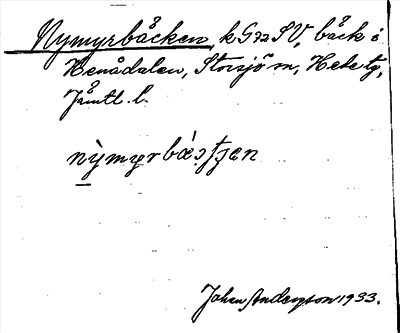 Nymyrbäcken, k G 72 SV, bäck i
Henådalen, Storsjö sn, Hede tg,
Jämtl. l.
nỳmyrbæ̀ʂtʂen
Johan Anderson 1933.